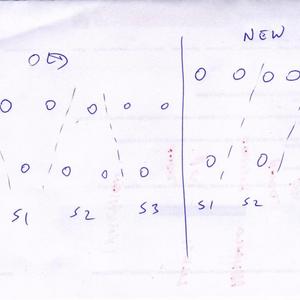 NEW
S1 S2 S3 S1 S2